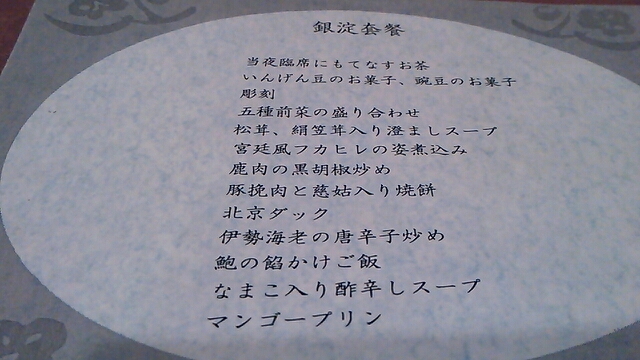 銀淀套餐
当夜臨席にもてなすお茶
いんげん豆のお菓子、豌豆のお菓子
彫刻
五種前菜の盛り合わせ
松茸、絹笠茸入り澄ましスープ
宮廷風フカヒレの姿煮込み
鹿肉の黒胡椒炒め
豚挽肉と慈姑入り焼餅
北京ダック
伊勢海老の唐辛子炒め
鮑の餡かけご飯
なまこ入り酢辛しスープ
マンゴープリン